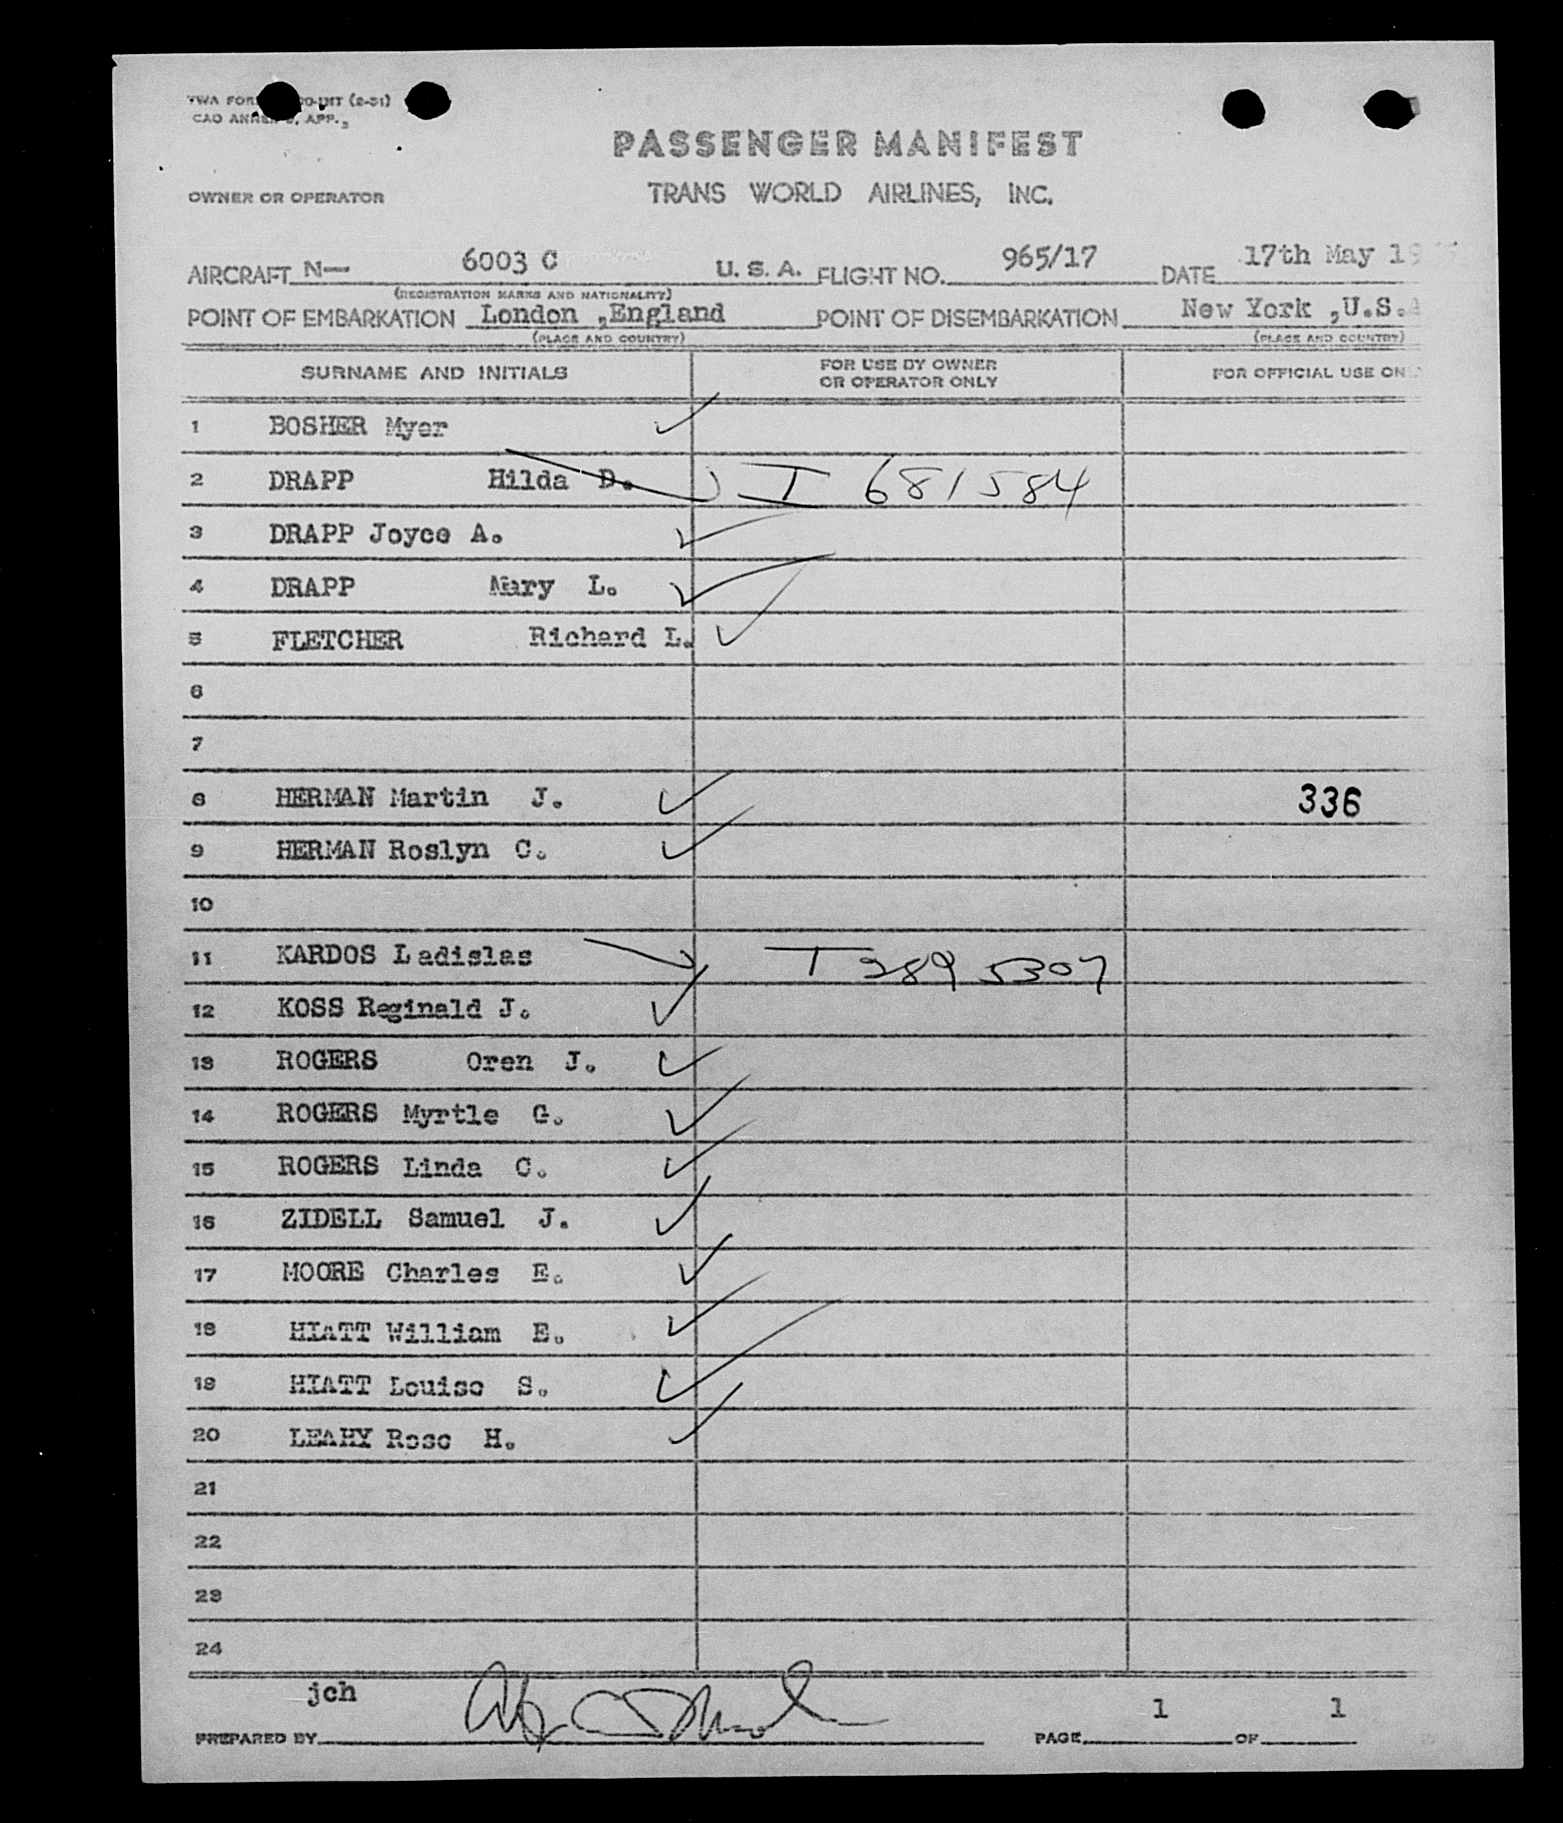 PASSENGER MANIFEST
OWNER OR OPERATOR TRANS WORLD AIRLINES, INC.
AIRCRAFT N— 6003 C U. S. A. FLIGHT NO. 965/17 DATE 17th May
(REGISTRATION MARKS AND NATIONALITY)
POINT OF EMBARKATION London ,England POINT OF DISEMBARKATION New York ,U.S.
(PLACE AND COUNTRY) (PLACE AND COUNTRY)
SURNAME AND INITIALS FOR USE BY OWNER OR OPERATOR ONLY FOR OFFICIAL USE
1 BOSHER Myer
2 DRAPP Hilda D. I 681584
3 DRAPP Joyce A.
4 DRAPP Mary L.
5 FLETCHER Richard L.
6
7
8 HERMAN Martin J. 336
9 HERMAN Roslyn C.
10
11 KARDOS Ladislas T 2895307
12 KOSS Reginald J.
13 ROGERS Oren J.
14 ROGERS Myrtle G.
15 ROGERS Linda C.
16 ZIDELL Samuel J.
17 MOORE Charles E.
18 HIATT William E.
19 HIATT Louise S.
20 LEAHY Rose H.
21
22
23
24
jch
PREPARED BY PAGE 1 OF 1